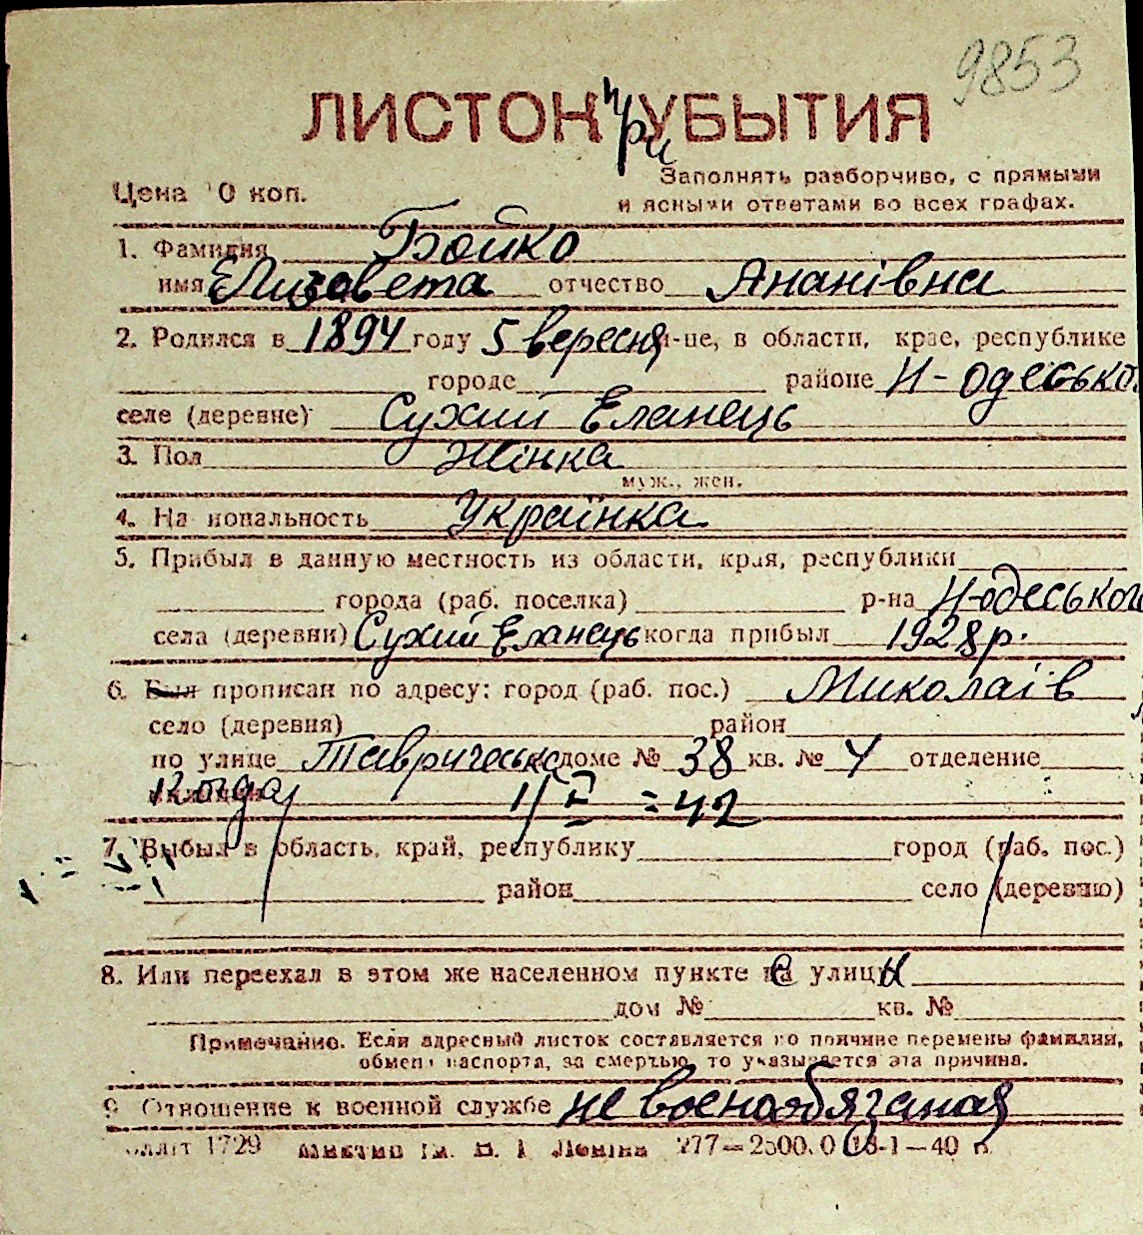 9853
ЛИСТОК при УБЫТИЯ
Цена 0 коп.
Заполнять разборчиво, с прямыми
и ясными ответами во всех графах.
1. Фамилия Бойко
имя Елизавета отчество Ананівна
2. Родился в 1894 году 5 вересня -це, в области, крае, республике
городе районе Н-Одесько
селе (деревне) Сухий Еланець
3. Пол Жінка
муж., жен.
4. На иональность Українка
5. Прибыл в данную местность из области, края, республики
города (раб. поселка) р-на Н-Одеського
села (деревни) Сухий Еланець когда прибыл 1928 р.
6. Был прописан по адресу: город (раб. пос.) Миколаїв
село (деревня) район
по улице Тавричеська доме № 38 кв. № 4 отделение
1/V = 42
7. Выбыл в область, край, республику город (раб. пос.)
район село (деревню)
8. Или переехал в этом же населенном пункте с улицы
дом № кв. №
Примечание. Если адресный листок составляется по причине перемены фамилии,
обмен паспорта, за смертью, то указывается эта причина.
9 Отношение к военной службе не военообязаная
1729 Ленина 277—2500.0 18-1—40 г.